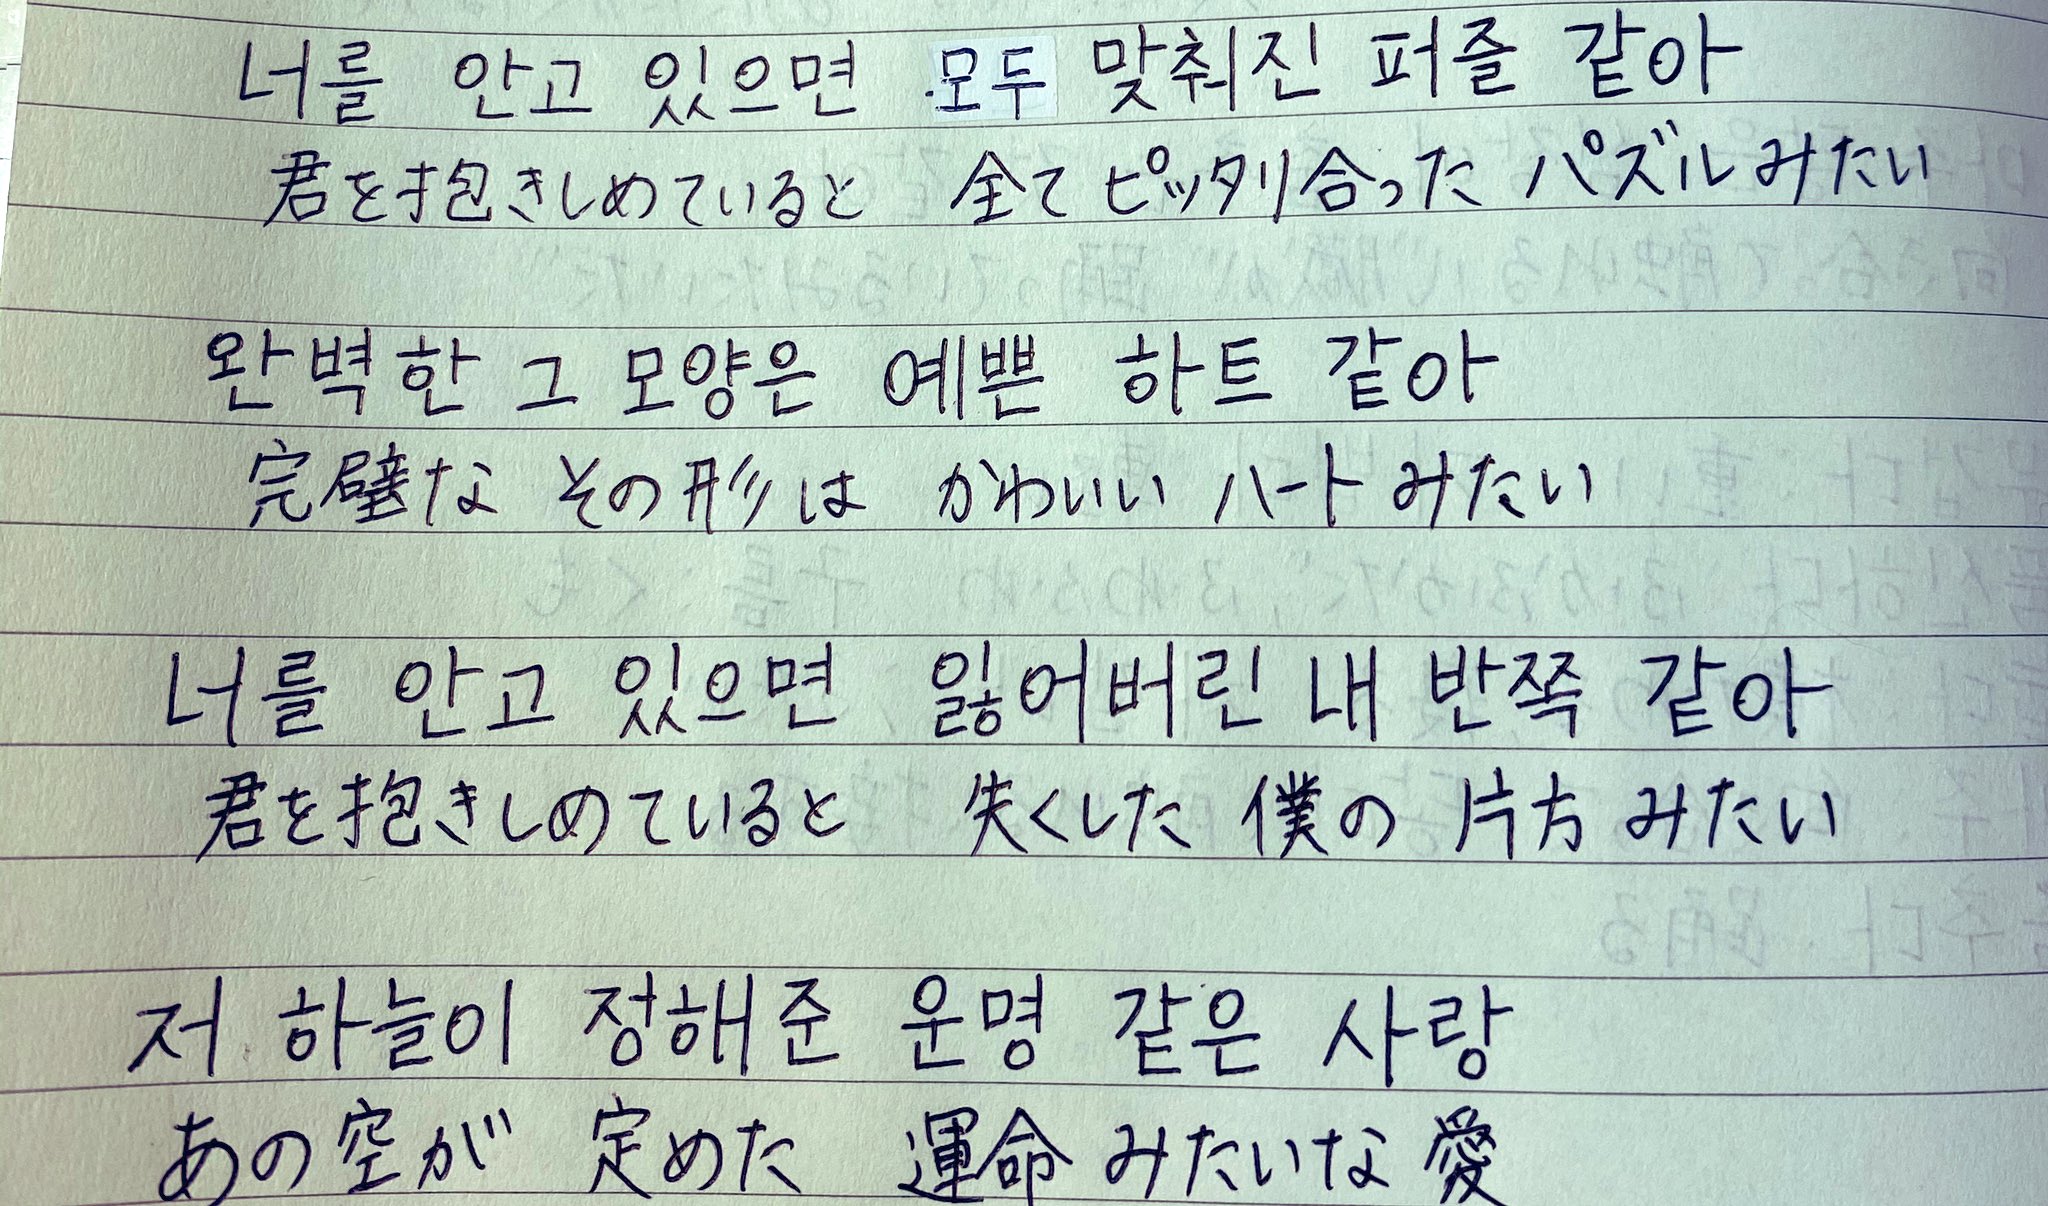 너를 안고 있으면 모두 맞춰진 퍼즐 같아
君を抱きしめていると 全てピッタリ合った パズルみたい
완벽한 그 모양은 예쁜 하트 같아
完璧な その形は かわいい ハートみたい
너를 안고 있으면 잃어버린 내 반쪽 같아
君を抱きしめていると 失くした 僕の 片方 みたい
저 하늘이 정해준 운명 같은 사랑
あの空が 定めた 運命 みたいな 愛